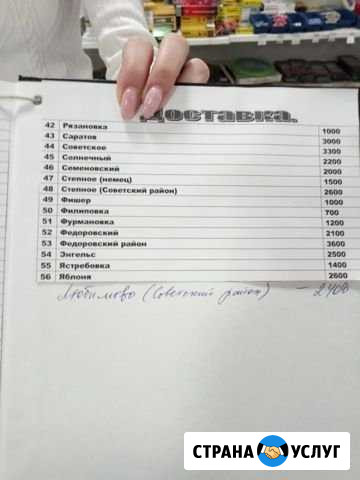 Доставка.
42 Рязановка 1000
43 Саратов 3000
44 Советское 3300
45 Солнечный 2200
46 Семеновский 2000
47 Степное (немец) 1500
48 Степное (Советский район) 2600
49 Фишер 1000
50 Филиповка 700
51 Фурмановка 1200
52 Федоровский 2100
53 Федоровский район 3600
54 Энгельс 2500
55 Ястребовка 1400
56 Яблоня 2600
Любимово (Советский район) – 2400
СТРАНА УСЛУГ